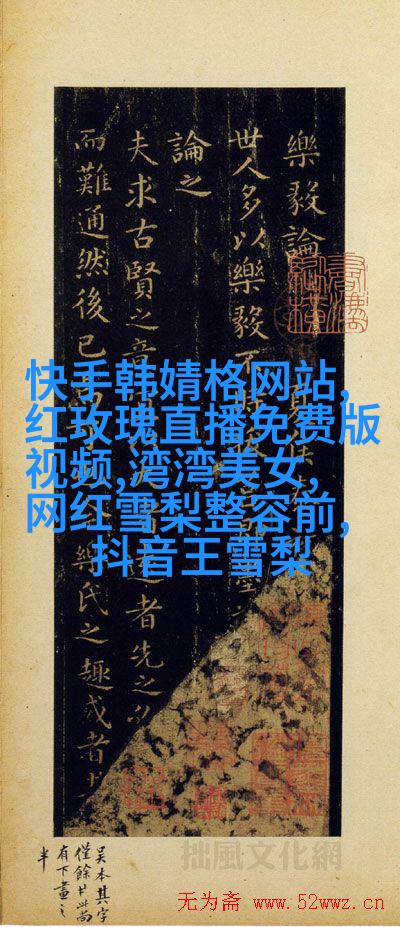 樂毅論
世人多以樂毅不
論之
夫求古賢之意 者先之
而難通然後已 樂氏之趣或者
快手韩婧格网站,
红玫瑰直播免费版
视频,湾湾美女,
网红雪梨整容前,
抖音王雪梨
吴本其字
僅餘 此尚
有下畫之
半
拙風文化網
无为斋 www.52wwz.cn